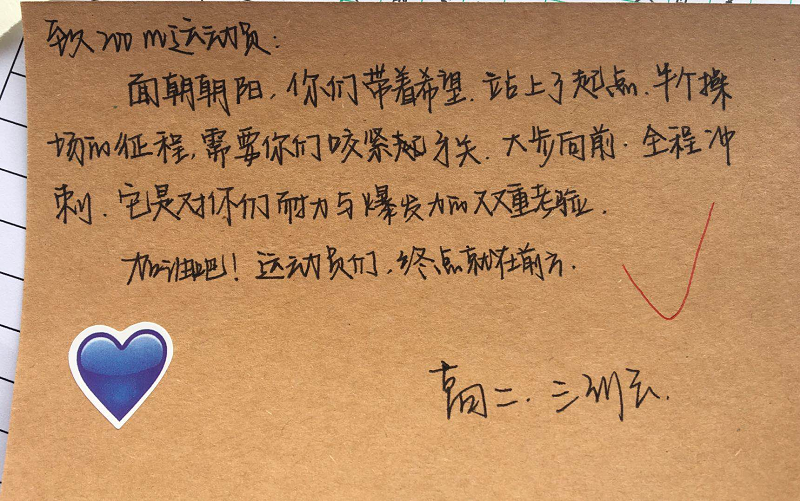 致200m运动员:
面朝朝阳,你们带着希望.站上了起点.半个操
场的征程,需要你们咬紧起牙关.大步向前.全程冲
刺.它是对你们耐力与爆发力的双重考验.
加油吧!运动员们,终点就在前方.
高二.三